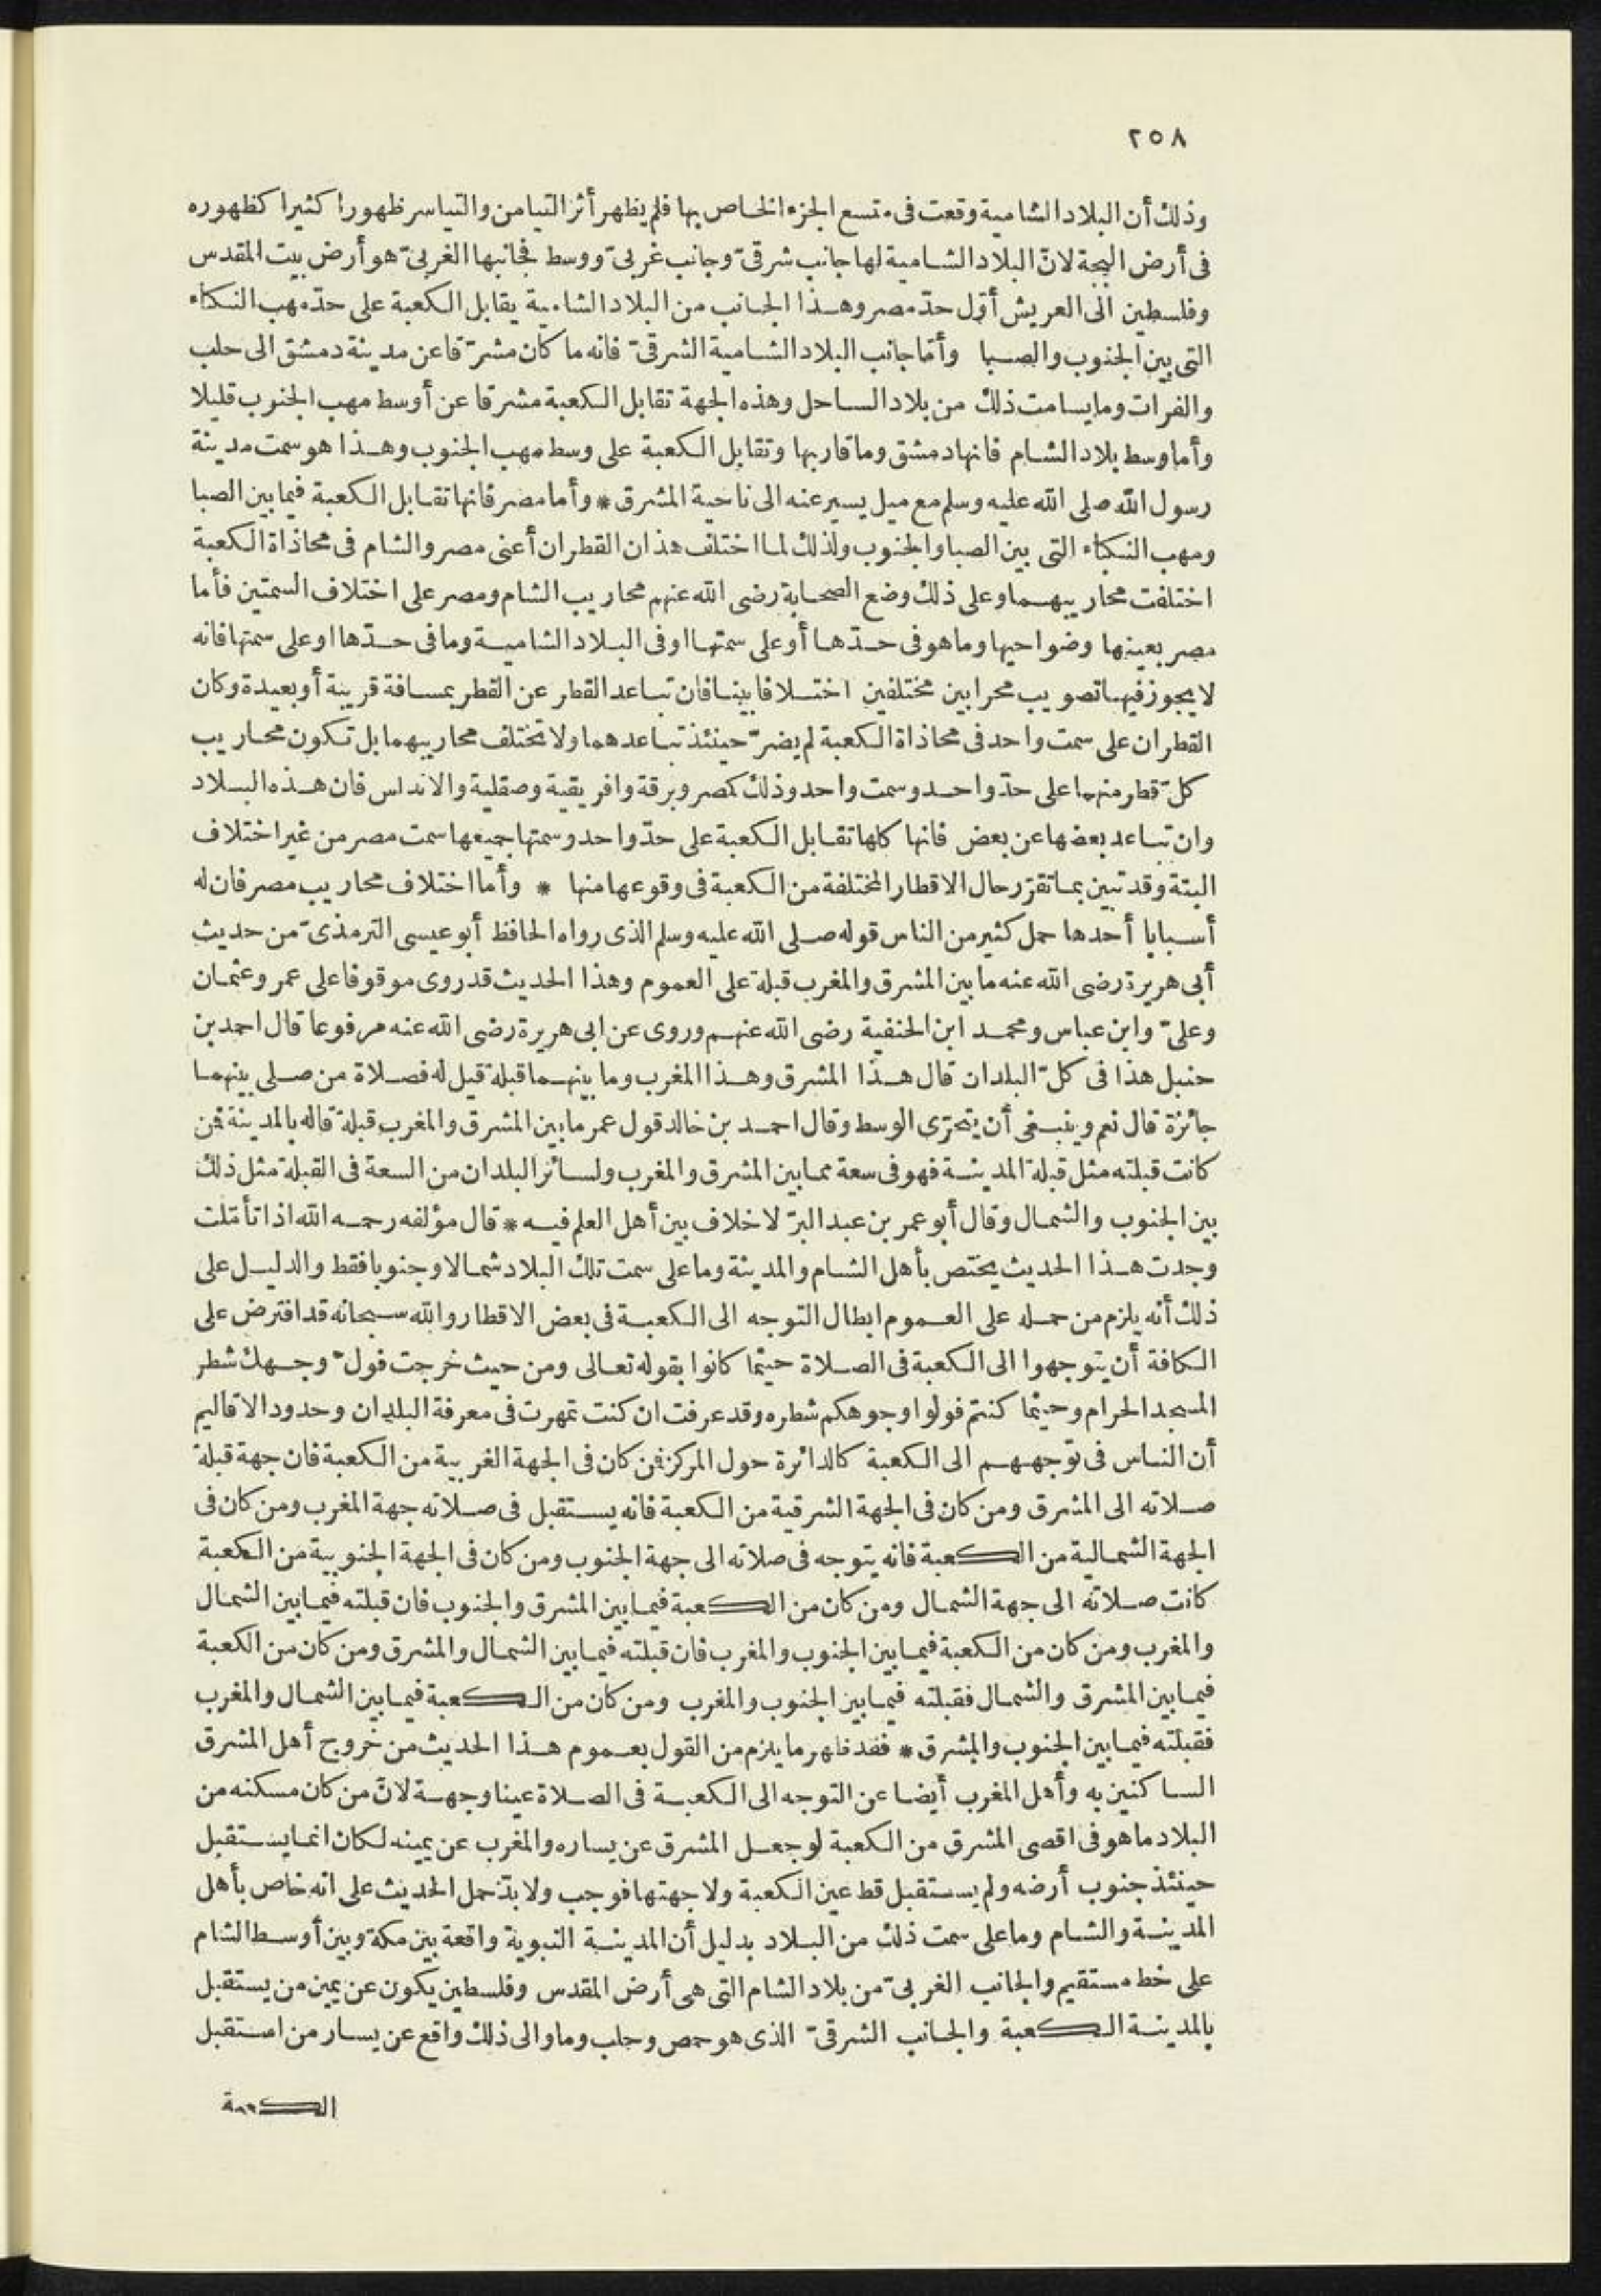 ٢٥٨
وذلك أن البلاد الشامية وقعت فى متسع الجزء الخاص بها فلم يظهر أثر التيامن والتياسر ظهورا كثيرا كظهوره
فى أرض البجة لانّ البلاد الشامية لها جانب شرقىّ وجانب غربىّ ووسط فجانبها الغربىّ هو أرض بيت المقدس
وفلسطين الى العريش أوّل حدّ مصر وهذا الجانب من البلاد الشامية يقابل الكعبة على حدّ مهب النكباء
التى بين الجنوب والصبا وأمّا جانب البلاد الشامية الشرقىّ فانه ما كان مشرّقا عن مدينة دمشق الى حلب
والفرات وما يسامت ذلك من بلاد الساحل وهذه الجهة تقابل الكعبة مشرقا عن أوسط مهب الجنوب قليلا
وأما وسط بلاد الشام فانها دمشق وما قاربها وتقابل الكعبة على وسط مهب الجنوب وهذا هو سمت مدينة
رسول الله صلى الله عليه وسلم مع ميل يسير عنه الى ناحية المشرق * وأما مصر فانها تقابل الكعبة فيما بين الصبا
ومهب النكباء التى بين الصبا والجنوب ولذلك لما اختلف هذان القطران أعنى مصر والشام فى محاذاة الكعبة
اختلفت محاريبهما وعلى ذلك وضع الصحابة رضى الله عنهم محاريب الشام ومصر على اختلاف السمتين فأما
مصر بعينها وضواحيها وما هو فى حدّها أو على سمتها او فى البلاد الشامية وما فى حدّها او على سمتها فانه
لا يجوز فيها تصويب محرابين مختلفين اختلافا بينا فان تباعد القطر عن القطر بمسافة قريبة أو بعيدة وكان
القطران على سمت واحد فى محاذاة الكعبة لم يضرّ حينئذ تباعدهما ولا تختلف محاريبهما بل تكون محاريب
كلّ قطر منهما على حدّ واحد وسمت واحد وذلك كمصر وبرقة وافريقية وصقلية والاندلس فان هذه البلاد
وان تباعد بعضها عن بعض فانها كلها تقابل الكعبة على حدّ واحد وسمتها جميعها سمت مصر من غير اختلاف
البتة وقد تبين بما تقرّر حال الاقطار المختلفة من الكعبة فى وقوعها منها * وأما اختلاف محاريب مصر فان له
أسبابا أحدها حمل كثير من الناس قوله صلى الله عليه وسلم الذى رواه الحافظ أبو عيسى الترمذىّ من حديث
أبى هريرة رضى الله عنه ما بين المشرق والمغرب قبلة على العموم وهذا الحديث قد روى موقوفا على عمر وعثمان
وعلىّ وابن عباس ومحمد ابن الحنفية رضى الله عنهم وروى عن ابى هريرة رضى الله عنه مرفوعا قال احمد بن
حنبل هذا فى كلّ البلدان قال هذا المشرق وهذا المغرب وما بينهما قبلة قيل له فصلاة من صلى بينهما
جائزة قال نعم وينبغى أن يتحرّى الوسط وقال احمد بن خالد قول عمر ما بين المشرق والمغرب قبلة قاله بالمدينة فمن
كانت قبلته مثل قبلة المدينة فهو فى سعة مما بين المشرق والمغرب ولسائر البلدان من السعة فى القبلة مثل ذلك
بين الجنوب والشمال وقال أبو عمر بن عبد البرّ لا خلاف بين أهل العلم فيه * قال مؤلفه رحمه الله اذا تأمّلت
وجدت هذا الحديث يختص بأهل الشام والمدينة وما على سمت تلك البلاد شمالا وجنوبا فقط والدليل على
ذلك أنه يلزم من حمله على العموم ابطال التوجه الى الكعبة فى بعض الاقطار والله سبحانه قد افترض على
الكافة أن يتوجهوا الى الكعبة فى الصلاة حيثما كانوا بقوله تعالى ومن حيث خرجت فولّ وجهك شطر
المسجد الحرام وحيثما كنتم فولوا وجوهكم شطره وقد عرفت ان كنت تمهرت فى معرفة البلدان وحدود الاقاليم
أن الناس فى توجههم الى الكعبة كالدائرة حول المركز فمن كان فى الجهة الغربية من الكعبة فان جهة قبلة
صلاته الى المشرق ومن كان فى الجهة الشرقية من الكعبة فانه يستقبل فى صلاته جهة المغرب ومن كان فى
الجهة الشمالية من الكعبة فانه يتوجه فى صلاته الى جهة الجنوب ومن كان فى الجهة الجنوبية من الكعبة
كانت صلاته الى جهة الشمال ومن كان من الكعبة فيما بين المشرق والجنوب فان قبلته فيما بين الشمال
والمغرب ومن كان من الكعبة فيما بين الجنوب والمغرب فان قبلته فيما بين الشمال والمشرق ومن كان من الكعبة
فيما بين المشرق والشمال فقبلته فيما بين الجنوب والمغرب ومن كان من الكعبة فيما بين الشمال والمغرب
فقبلته فيما بين الجنوب والمشرق * فقد ظهر ما يلزم من القول بعموم هذا الحديث من خروج أهل المشرق
الساكنين به وأهل المغرب أيضا عن التوجه الى الكعبة فى الصلاة عينا وجهة لانّ من كان مسكنه من
البلاد ما هو فى اقصى المشرق من الكعبة لو جعل المشرق عن يساره والمغرب عن يمينه لكان انما يستقبل
حينئذ جنوب أرضه ولم يستقبل قط عين الكعبة ولا جهتها فوجب ولا بدّ حمل الحديث على انه خاص بأهل
المدينة والشام وما على سمت ذلك من البلاد بدليل أن المدينة النبوية واقعة بين مكة وبين أوسط الشام
على خط مستقيم والجانب الغربىّ من بلاد الشام التى هى أرض المقدس وفلسطين يكون عن يمين من يستقبل
بالمدينة الكعبة والجانب الشرقىّ الذى هو حمص وحلب وما والى ذلك واقع عن يسار من استقبل
الكعبة